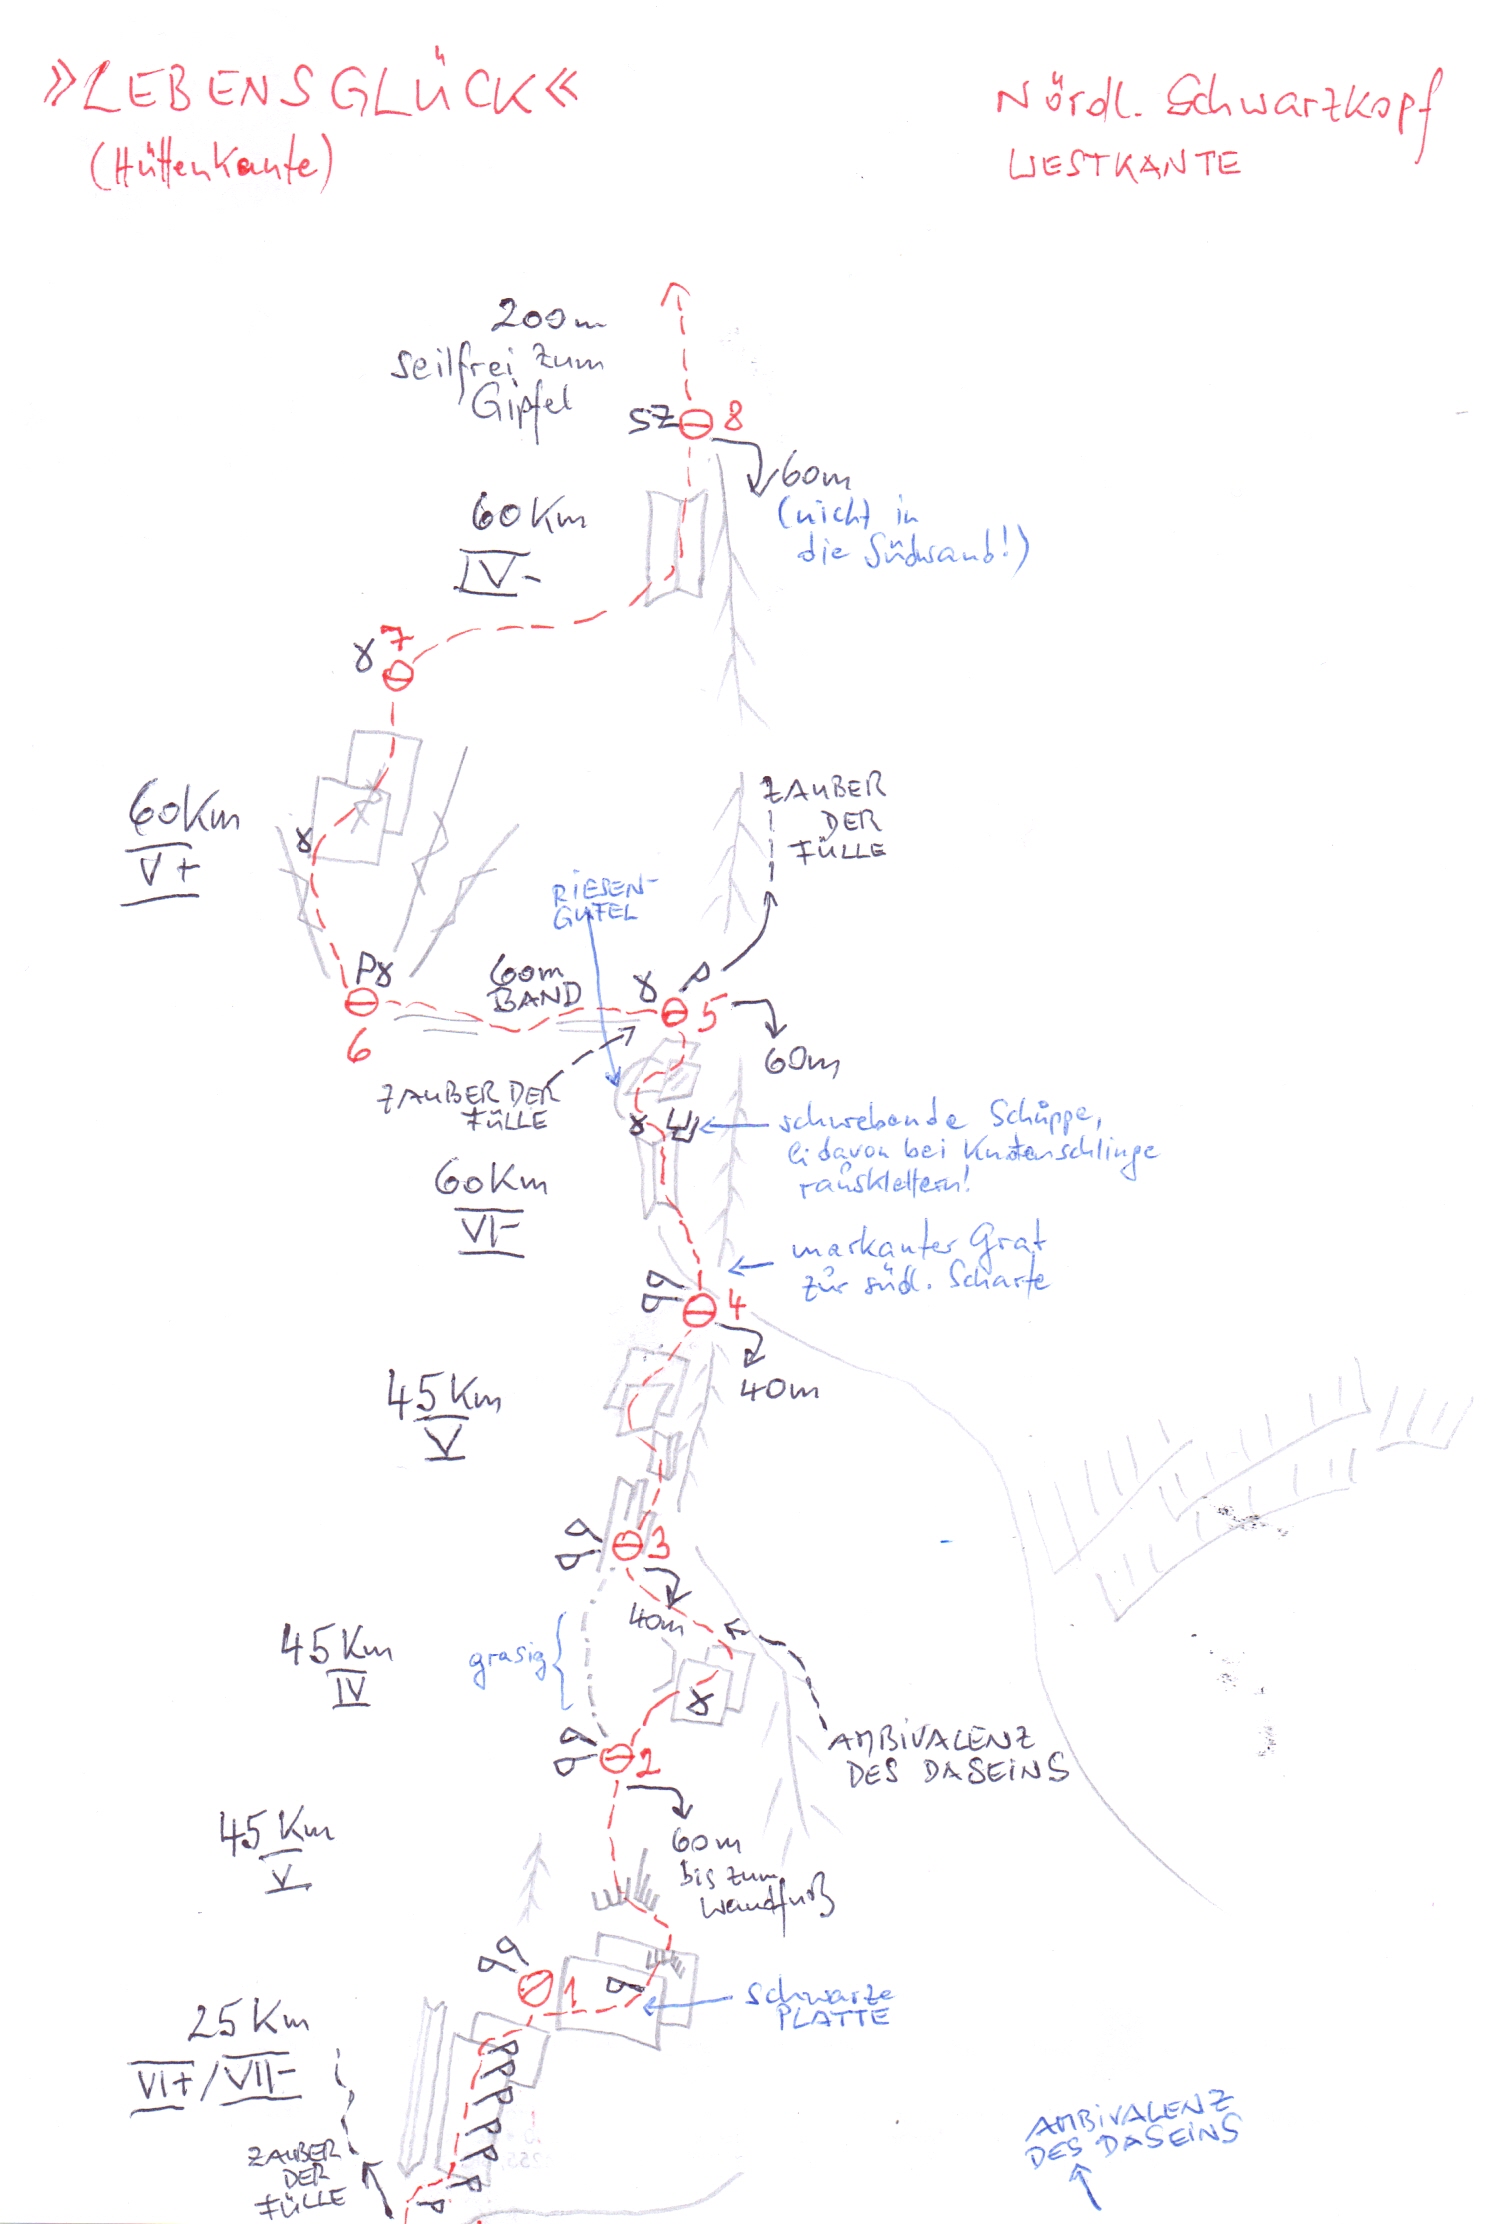 »LEBENSGLÜCK«
(Hüttenkante)
Nördl. Schwarzkopf
WESTKANTE
200m
seilfrei zum
Gipfel
SZ 8
60m
(nicht in
die Südwand!)
60Km
IV-
7
60Km
V+
ZAUBER
DER
FÜLLE
RIESEN-
GUFEL
P
6
60m
BAND
P
5
60m
ZAUBER DER
FÜLLE
schwebende Schuppe,
li davon bei Knotenschlinge
rausklettern!
60Km
VI-
markanter Grat
zur südl. Scharte
4
40m
45Km
V
3
40m
45Km
IV
grasig
2
AMBIVALENZ
DES DASEINS
60m
bis zum
Wandfuß
45Km
V
1
schwarze
PLATTE
25Km
VI+/VII-
ZAUBER
DER
FÜLLE
AMBIVALENZ
DES DASEINS